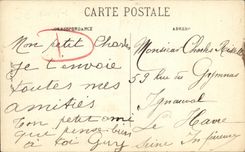 CARTE POSTALE
CORRESPONDANCE
ADRESSE
Mon petit Charles
je t'envoie
toutes mes
amitiés
Ton petit ami
qui pense bien
à toi Guy
Monsieur Charles
59 rue du Gymnase
Le Havre
Seine Inférieure